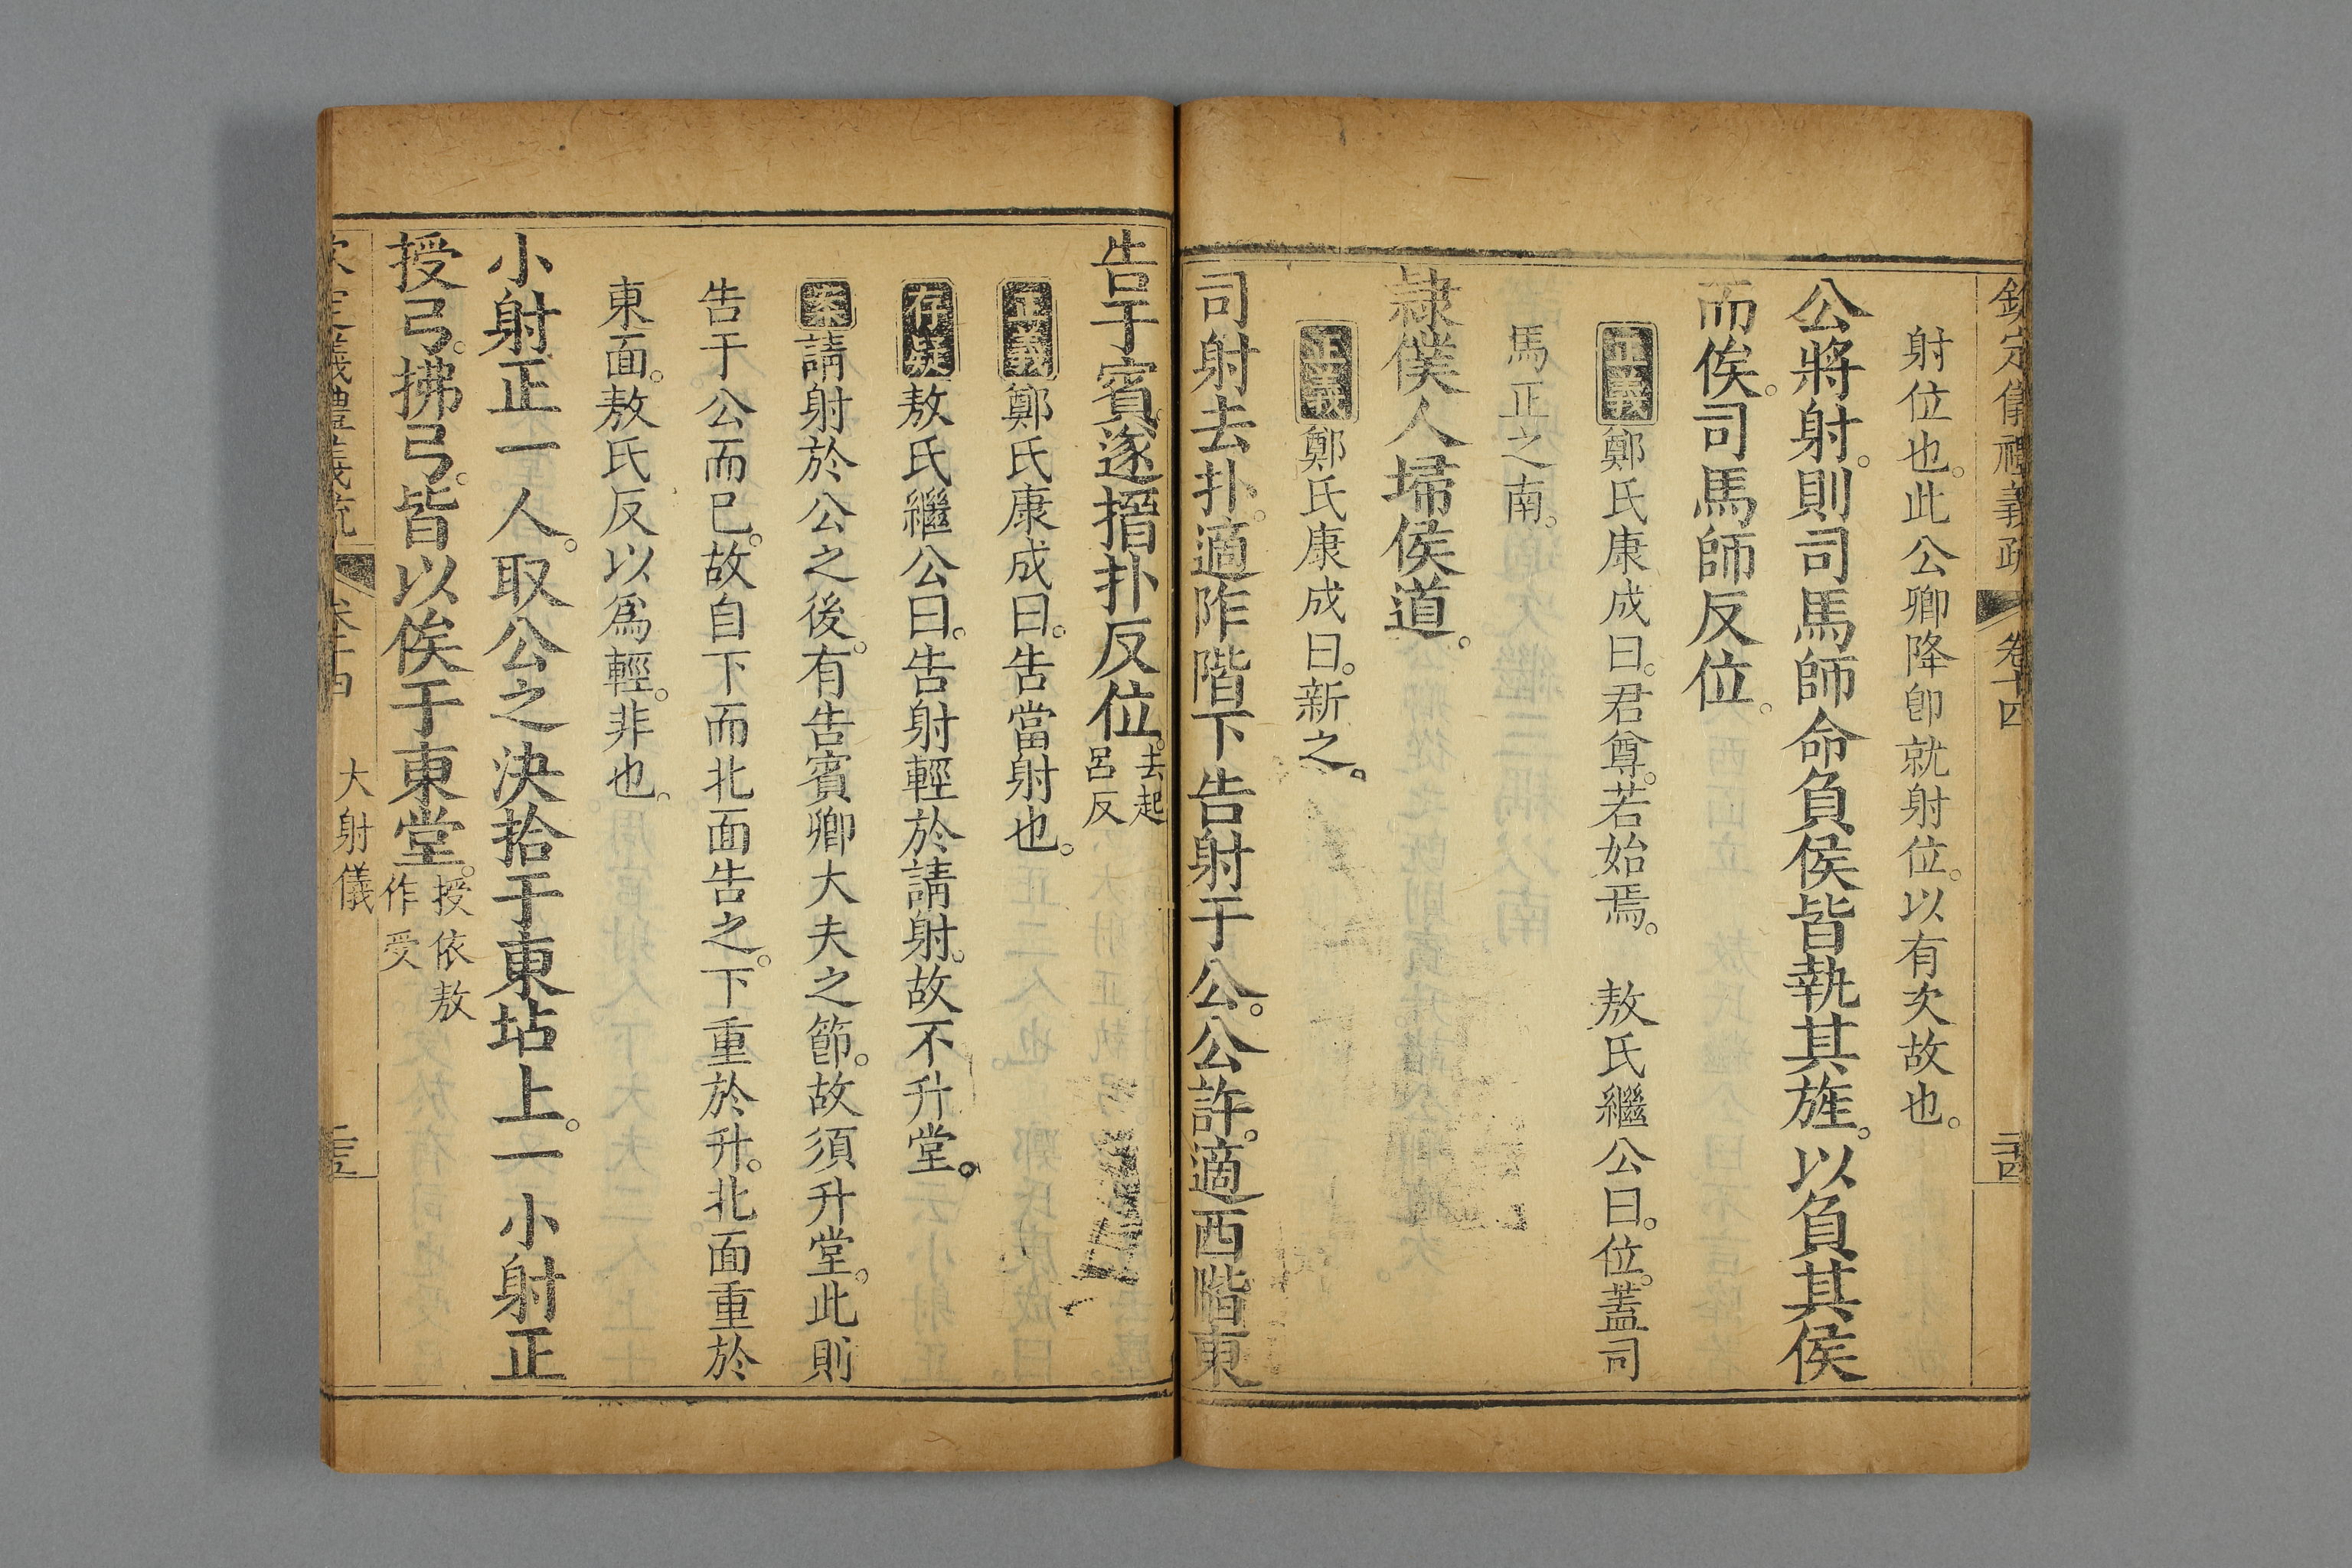 欽定儀禮義疏 卷十四 二十四
射位也。此公卿降卽就射位。以有次故也。
公將射。則司馬師命負侯皆執其旌。以負其侯
而俟。司馬師反位。
正義鄭氏康成曰。君尊。若始焉。 敖氏繼公曰。位。蓋司
馬正之南。
隷僕人埽侯道。
正義鄭氏康成曰。新之。
司射去扑。適阼階下告射于公。公許。適西階東
告于賓。遂搢扑反位。去起呂反
正義鄭氏康成曰。告當射也。
存疑敖氏繼公曰。告射輕於請射。故不升堂。
案請射於公之後。有告賓卿大夫之節。故須升堂。此則
告于公而已。故自下而北面告之。下重於升。北面重於
東面。敖氏反以爲輕。非也。
小射正一人。取公之決拾于東坫上。一小射正
授弓。拂弓。皆以俟于東堂。授依敖作受
欽定儀禮義疏 卷十四 大射儀 二十五